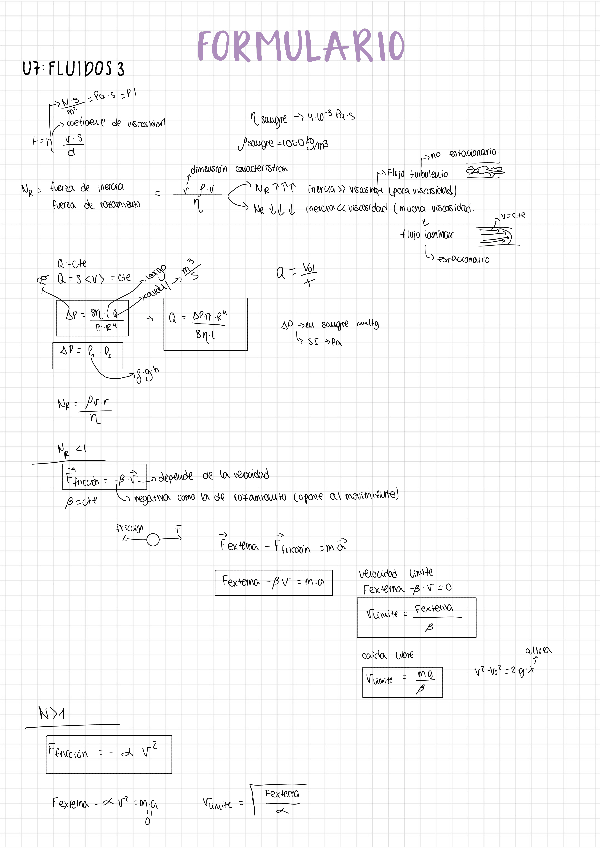 FORMULARIO
U7: FLUIDOS 3
N·S/m² = Pa·s = Pl
coeficiente de viscosidad
F = η v·S/d
η sangre → 4·10⁻³ Pa·s
ρ sangre = 1060 kg/m³
dimensión característica
NR = fuerza de inercia / fuerza de rozamiento = r ρ·v / η
NR ↑↑↑ inercia >> viscosidad (poca viscosidad)
Flujo turbulento
no estacionario
NR ↓↓↓ inercia << viscosidad (mucha viscosidad)
flujo laminar
v=cte
estacionario
Q = cte
Q = S <v> = cte
largo
caudal m³/s
Q = Vol/t
ΔP = 8η·l·Q / π·R⁴
→ Q = ΔP π·R⁴ / 8η·l
ΔP → en sangre mmHg
SI → Pa
ΔP = P₁ - P₂
ρ·g·h
NR = ρv·r / η
NR < 1
F fricción = -β·v → depende de la velocidad
β = cte
negativa como la de rozamiento (opone al movimiento)
fricción
F
F externa - F fricción = m·a
F externa - βv = m·a
velocidad límite
F externa - β·v = 0
v límite = F externa / β
caída libre
v límite = mg / β
altura
v² - v₀² = 2g·
N>1
F fricción = - α v²
F externa - α v² = m·a
0
v límite = √ F externa / α